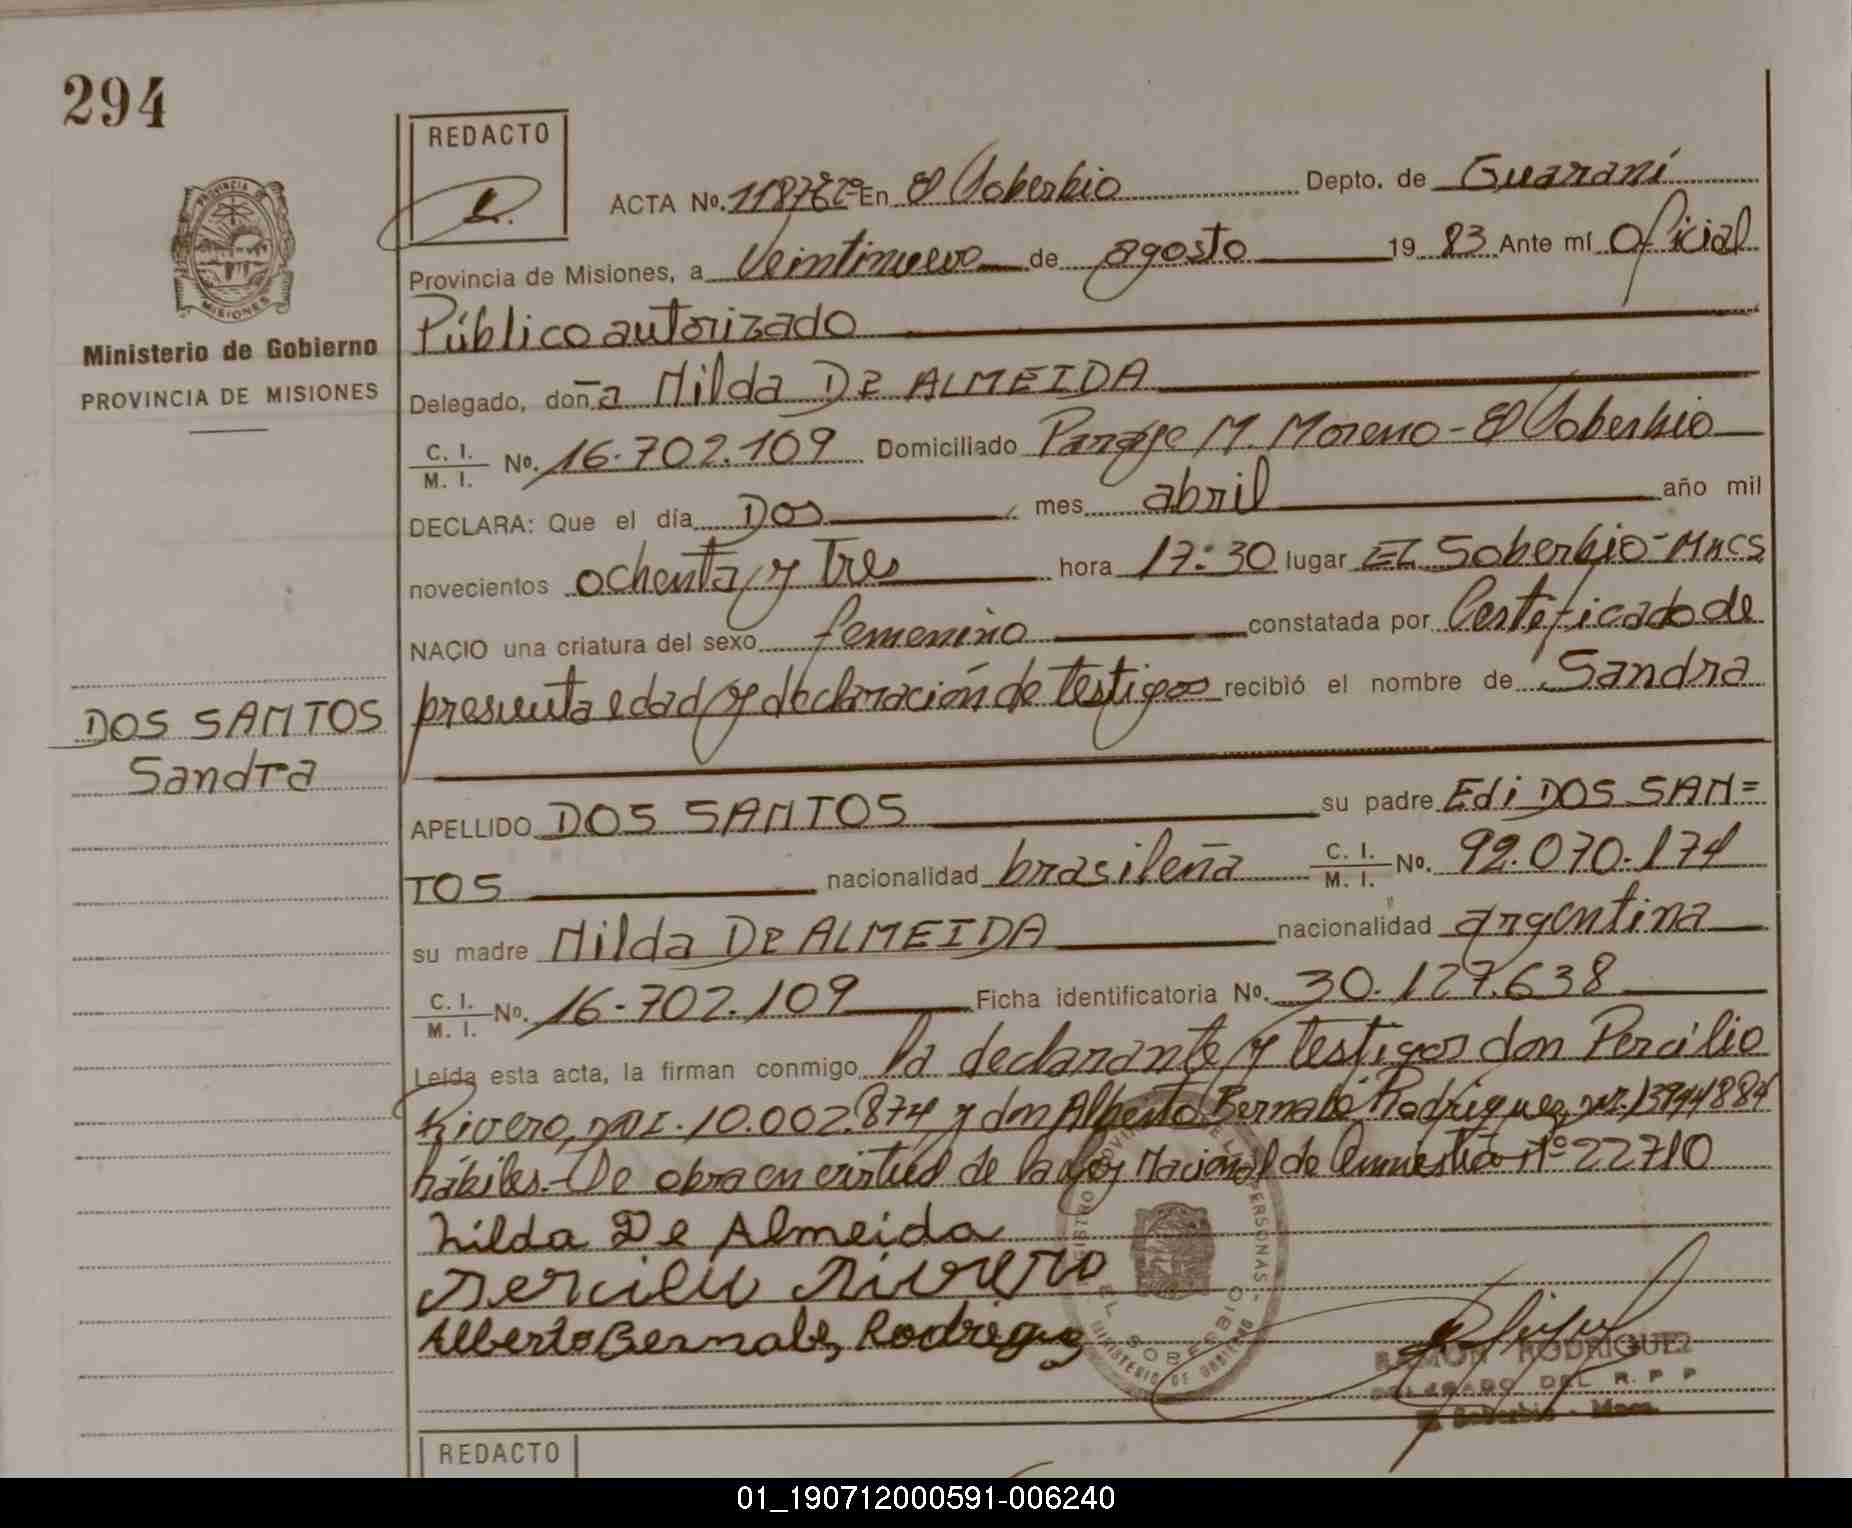 294
REDACTO
PROVINCIA DE
MISIONES
Ministerio de Gobierno
PROVINCIA DE MISIONES
ACTA No. En El Soberbio Depto. de Guaraní
Provincia de Misiones, a Veintinueve de agosto 19 83 Ante mí Oficial
Público autorizado
Delegado, doña Nilda DE ALMEIDA
C. I. / M. I. No. 16.702.109 Domiciliado Paraje M. Moreno - El Soberbio
DECLARA: Que el día Dos mes abril año mil
novecientos ochenta y tres hora 17:30 lugar EL Soberbio - Mnes
NACIO una criatura del sexo femenino constatada por Certificado de
presunta edad y declaración de testigos recibió el nombre de Sandra
DOS SANTOS
Sandra
APELLIDO DOS SANTOS su padre Edi DOS SAN=
TOS nacionalidad brasileña C. I. / M. I. No. 92.070.174
su madre Nilda DE ALMEIDA nacionalidad argentina
C. I. / M. I. No. 16-702.109 Ficha identificatoria No. 30.127.638
Leída esta acta, la firman conmigo la declarante y testigos don Percilio
Rivero, 10.002.874 y don Alberto Bernabé Rodriguez,
hábiles.- Se obra en virtud de la Ley Nacional de Amnistía Nº 22710
Nilda De Almeida
Percilio Rivero
Alberto Bernabe Rodriguez
EL SOBERBIO
MINISTERIO DE GOBIERNO
RAMON RODRIGUEZ
DELEGADO DEL R. P P
El Soberbio - Mnes.
REDACTO
01_190712000591-006240